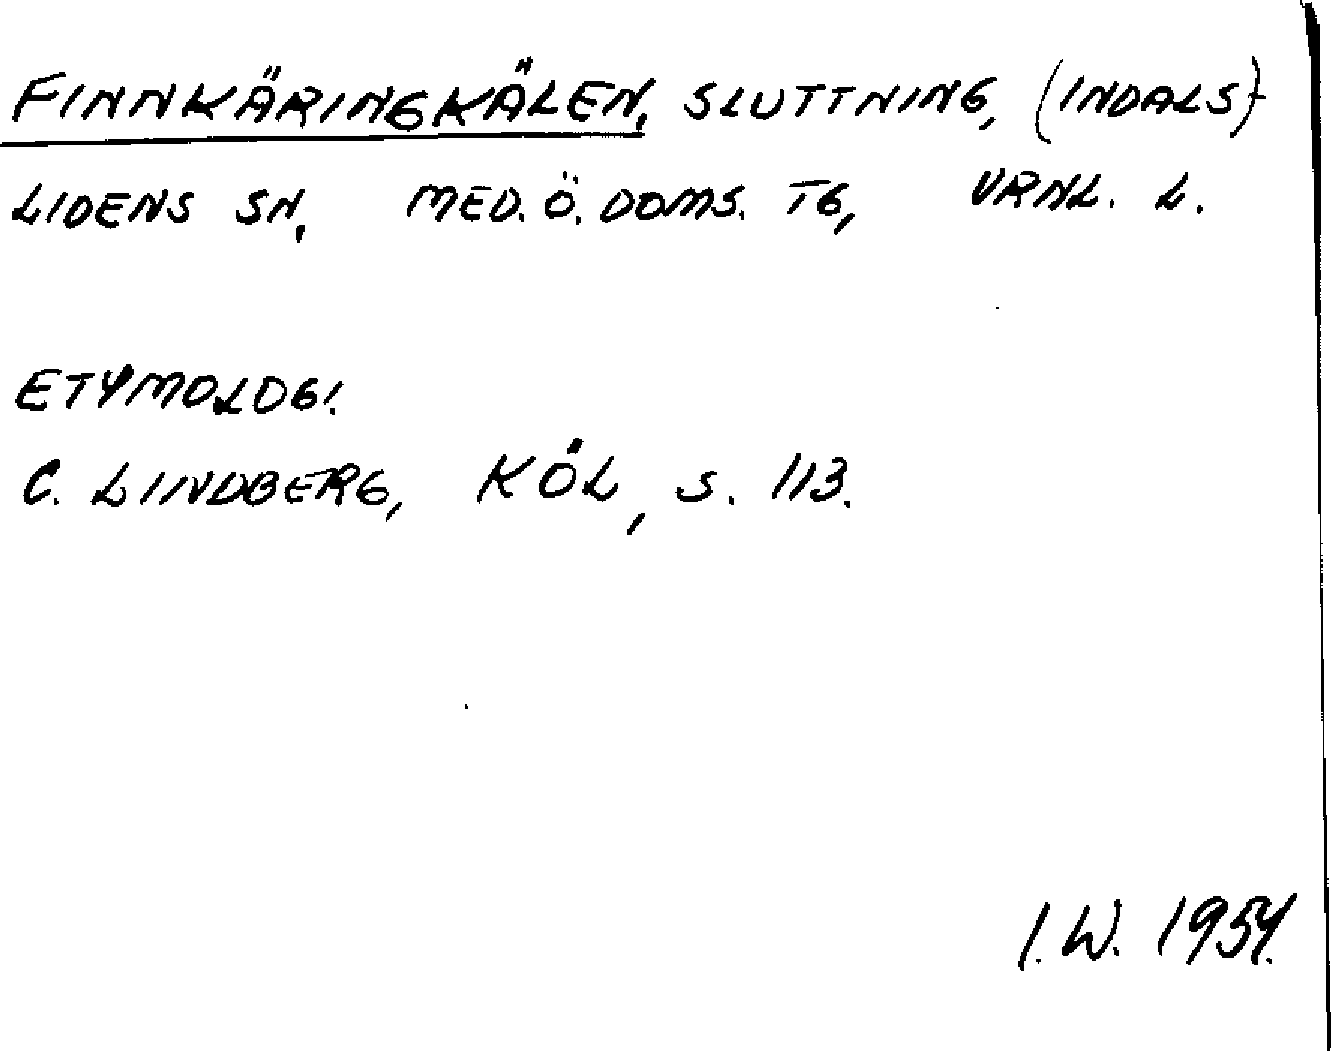 FINNKÄRINGKÄLEN, SLUTTNING, (INDALS)-
LIDENS SN, MED. Ö. DOMS. TG, VRNL. L.
ETYMOLOGI.
C. LINDBERG, KÖL, S. 113.
I.W. 1954.